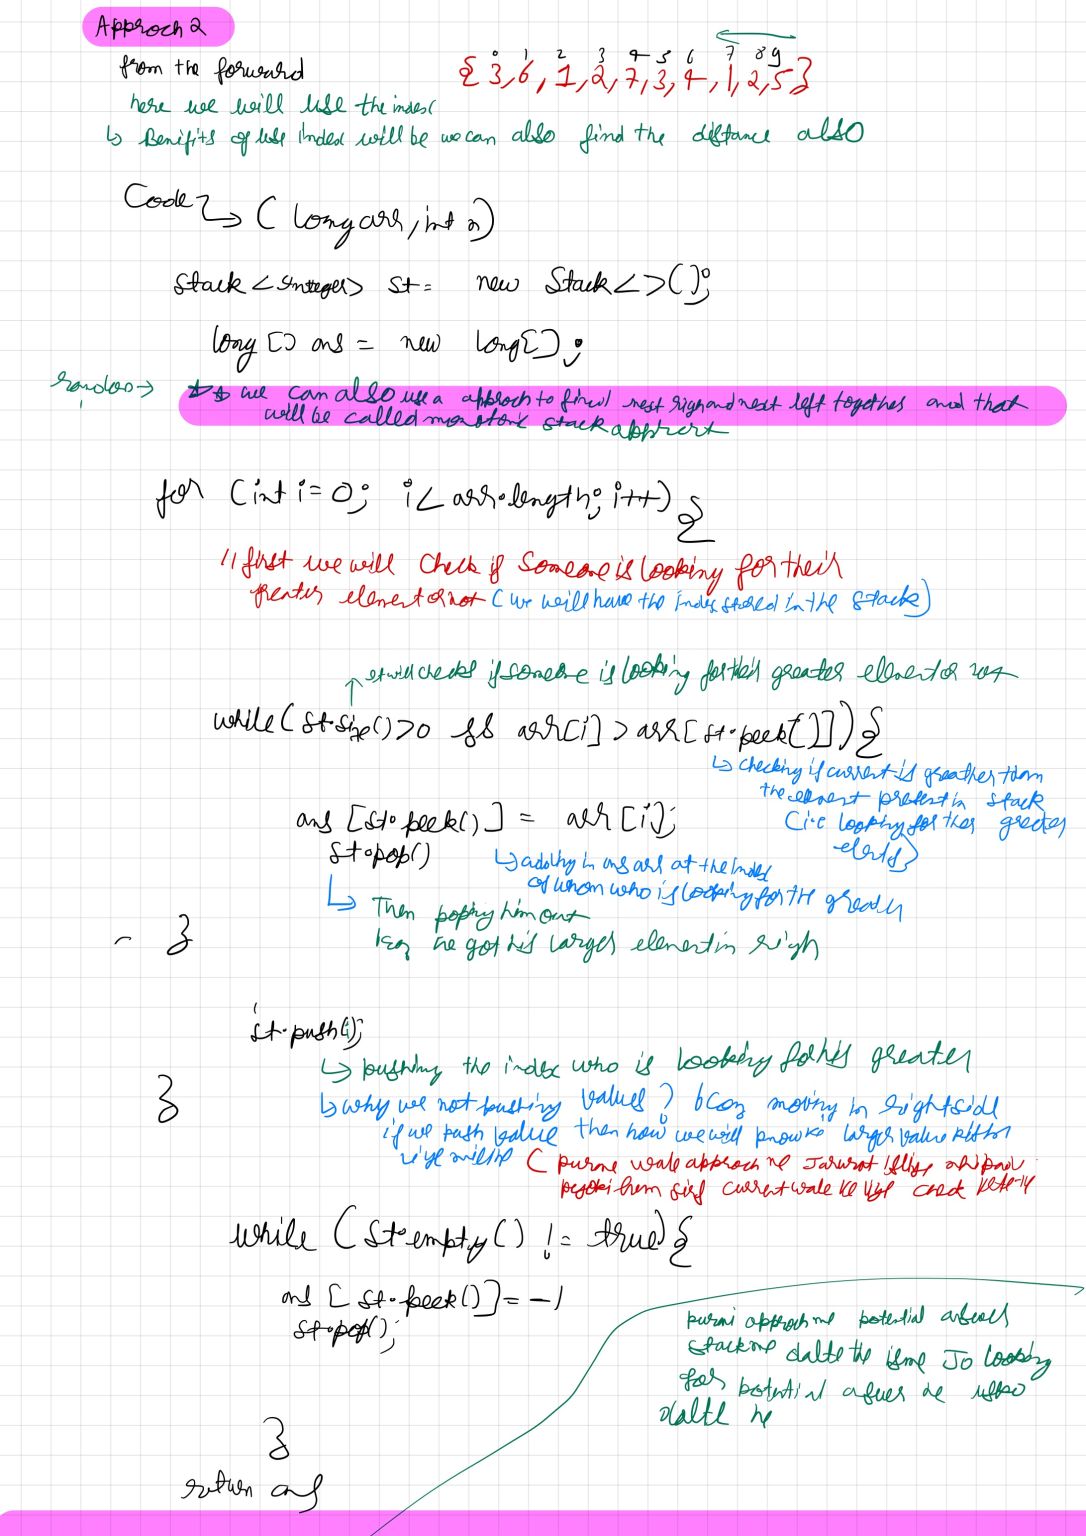 Approch 2
from the forward
0 1 2 3 4 5 6 7 8 9
{ 3, 6, 1, 2, 7, 3, 4, 1, 2, 5 }
here we will use the index
↳ Benifits of use index will be we can also find the distance also
Code ↳ ( long arr, int n)
Stack <Integer> st = new Stack< >();
long [] ans = new long[];
we can also use a approch to find nest righ and nest left together and that
will be called monotonic stack
for (int i = 0; i < arr.length; i++) {
// first we will check if someone is looking for their
greater element or not ( we will have the index stored in the stack)
checks if someone is looking for their greater element or not
while( st.size() > 0 && arr[i] > arr[st.peek()]) {
↳ checking if current is greather than
the element present in stack
(i.e looking for ther greater
ans [st.peek()] = arr [i];
st.pop()
↳ adding in ans arr at the index
of whom who is looking for the greater
↳ Then poping him out
bcoz he got his larger element in righ
}
st.push(i);
↳ pushing the index who is looking for his greater
}
↳ why we not pushing values ? bcoz moving in rightside
if we push value then how we will know larger value
current wale ke liye check
while (st.empty() != true) {
ans [ st.peek()] = -1
st.pop();
purani approch me potential
stack me dalte the isme Jo looking
for potential he usko
dalte he
}
return ans